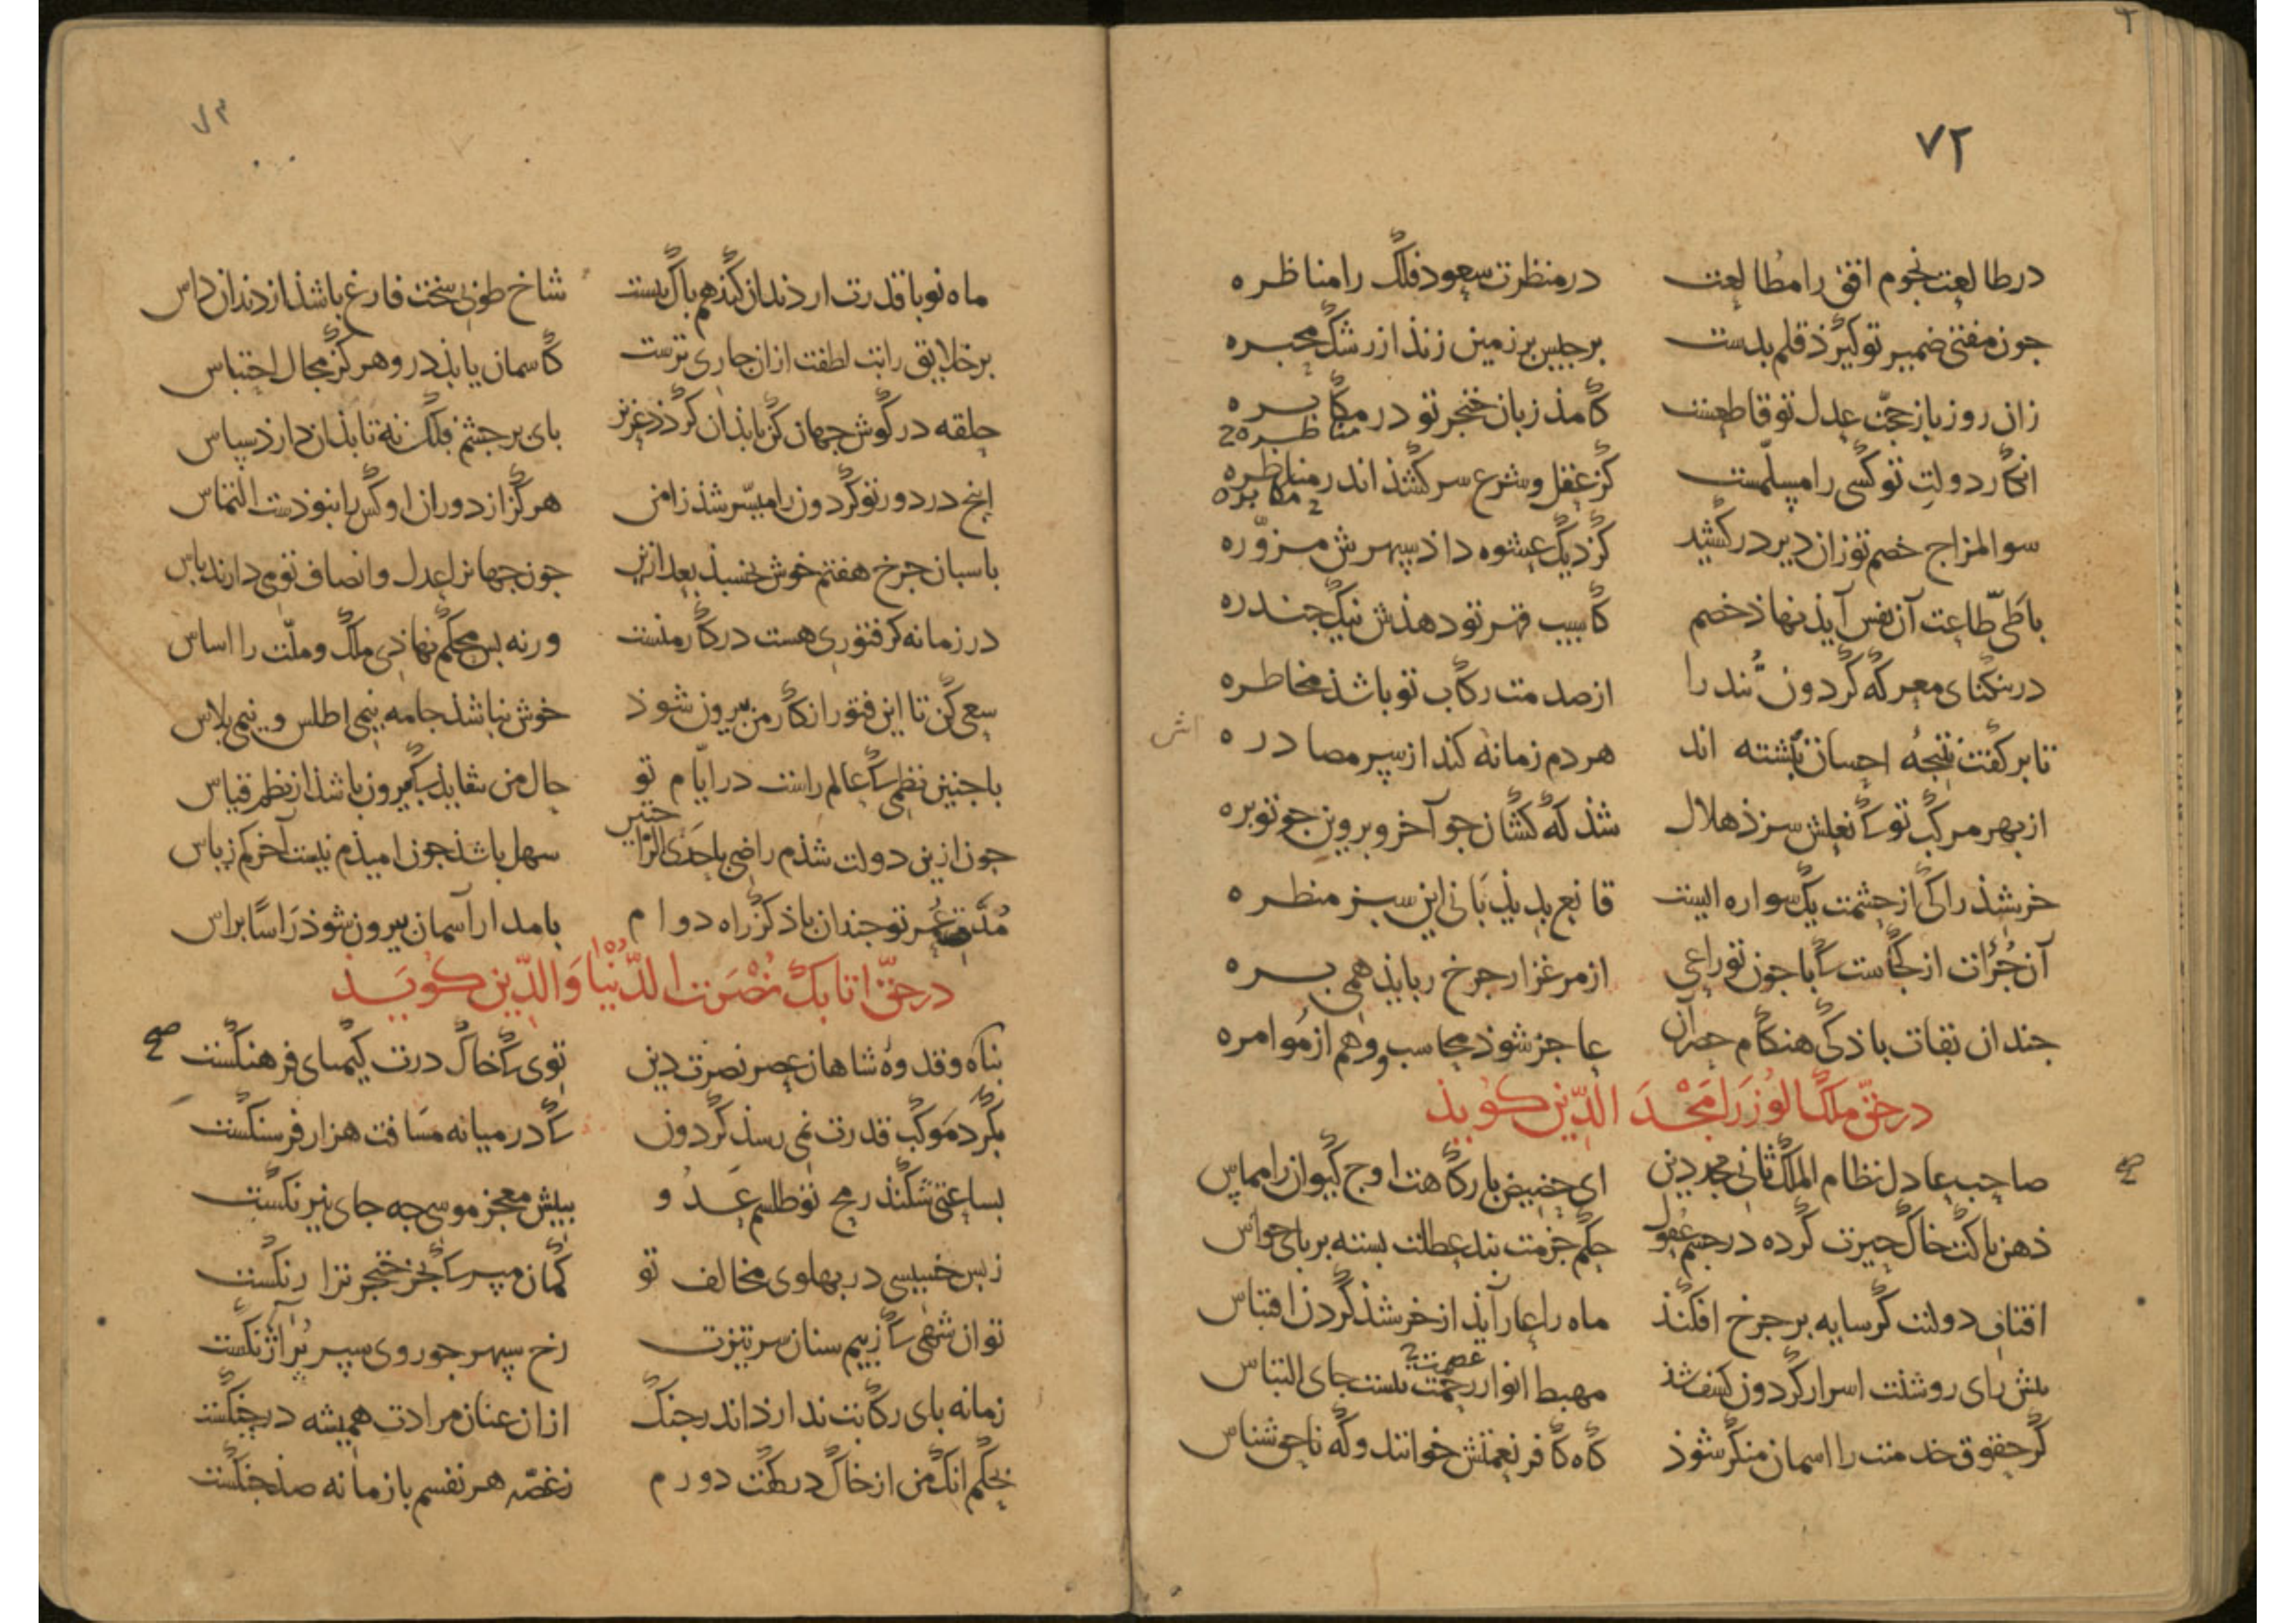 ۷۲
در طالعت نجوم افق را مطالعت در منظرت سعود فلک را مناظره
جون مفتی ضمیر تو گیرذ قلم بدست برجیس بر زمین زنذ از رشک محبره
زان روز باز حجّت عدل تو قاطعست کامذ زبان خنجر تو در مکابره
مناظره
انکار دولت تو کسی را مسلّمست کز عقل و شرع سرکشذ اندر مناظره
مکابره
سو المزاج خصم تو زان دیر در کشید کز دیک عشوه داذ سپهرش مزوّره
با طیّ طاعت آن نفس آیذ نهاذ خصم کاسیب قهر تو دهذش نیک جندره
در تنکنای معرکه کردون تند را از صدمت رکاب تو باشذ مخاطره
تا بر کفت نتیجهٔ احسان نبشته اند هر دم زمانه کند از سر مصادره
از بهر مرکب تو که نعلش سزذ هلال شذ که کشان جو آخر و بروین جو توبره
خرشیذ را کی از حشمت یک سواره ایست قانع بدیذبانی این سبز منظره
آن جُرأت از کجاست که با جون تو راعی از مرغزار جرخ ربایذ همی بره
جندان بقات باذ کی هنکام حصر آن عاجز شوذ محاسب وهم از مُوامره
در حقّ ملک الوزرا مجد الدّین کوید
صاحب عادل نظام الملک ثانی مجد دین ای حضیض بارکاهت اوج کیوان را مماس
ذهن باکت خاک حیرت کرده در جشم عقول حکم حزمت بند عطلت بسته بر بای حواس
افتاب دولتت کر سایه بر جرخ افکنذ ماه را عار آیذ از خرشیذ کردن اقتباس
بیش رای روشنت اسرار کردون کشف شذ مهبط انوار رحمت نیست جای التباس
عصمت
کر حقوق خدمتت را اسمان منکر شوذ کاه کافر نعمتش خوانند و که ناحق شناس
ماه نو با قدرت ار دندان کنذ هم باک نیست شاخ طوبی سخت فارغ باشذ از دندان داس
بر خلایق رایت لطفت ازان جاری ترست کاسمان یابذ درو هرکز مجال احتباس
حلقه در کوش جهان کن تا بذان کردذ عزیز بای بر جشم فلک نه تا بذان دارذ سپاس
اینج در دور تو کردون را میسّر شذ ز امن هرکز از دوران او کس را نبوذ دست التماس
باسبان جرخ هفتم خوش بخسبذ بعد ازین جون جهان را عدل و انصاف تو می دارند باس
در زمانه کر فتوری هست در کار منست ورنه بس محکم نهاذی ملک و ملّت را اساس
سعی کن تا این فتور از کار من بیرون شوذ خوش نباشذ جامه نیمی اطلس و نیمی بلاس
با جنین نظمی که عالم راست در ایّام تو حال من شاید که بیرون باشذ از نظم قیاس
جون ازین دولت شذم راضی باحدی الراحتین سهل باشذ جون امیذم نیست آخر کم ز یاس
مُدّت عُمر تو جندان باذ کز راه دوام با مدار آسمان بیرون شوذ رَاسًا براس
در حقّ اتابک نُصرت الدّنیا وَ الدّین کویَد
بناه و قدوهٔ شاهان عصر نصرت دین توی که خاک درت کیمیای فرهنکست
بکرد مَوکب قدرت نمی رسذ کردون که در میانه مَسافت هزار فرسنکست
بساعتی شکنذ رمح تو طلسم عَدُو ببیش معجز موسی جه جای نیرنکست
ز بس خبیسی در بهلوی مخالف تو کمان مبر که بجز خنجر ترا رنکست
تو ان شهی که ز بیم سنان سر تیزت رخ سپهر جو روی سپر پُر آژنکست
زمانه بای رکابت ندارذ اندر جنک از ان عنان مرادت همیشه در جنکست
بحکم انک من از خاک درکهت دورم ز غصّه هر نفسم با زمانه صد جنکست